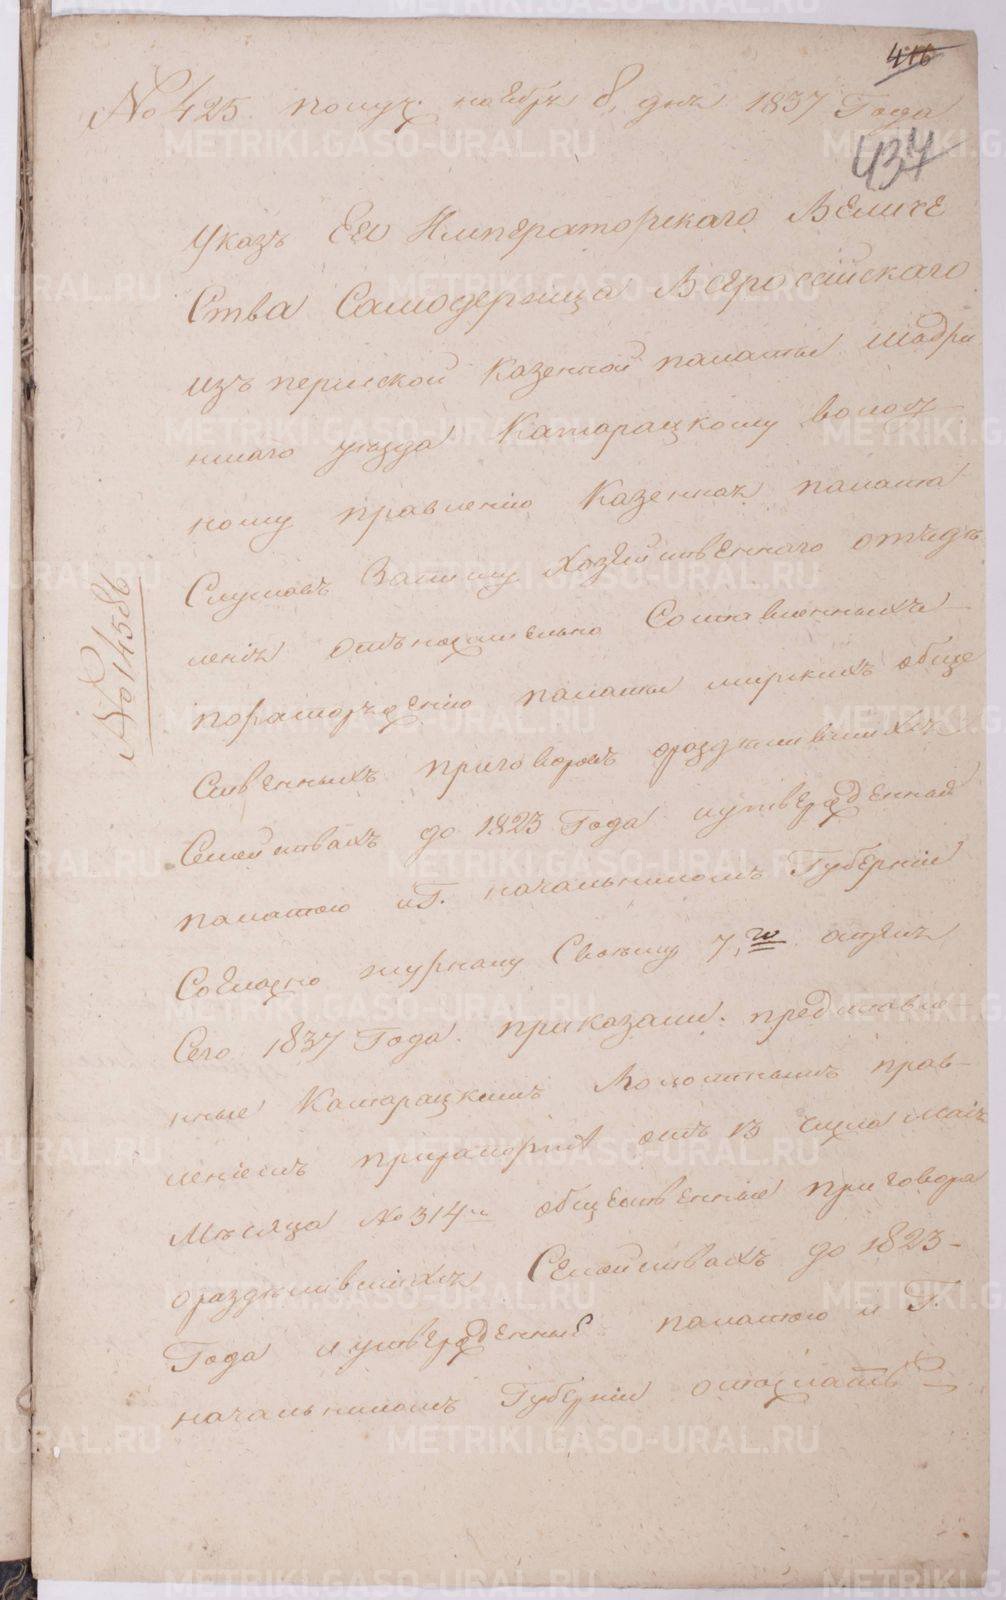 416
№ 425 получ. ноября 8, дня 1837 Года
437
Указъ Его Императорскаго Величе
Ства Самодержца Всеросийскаго
изъ пермской Казенной палаты Шадри
нскаго уезда Катарацкому волост
ному правлению Казенная палата
Слушавъ Записку Хозяйственнаго отъдѣ
ления отъносительно Составленныхъ
порасторжению палаты мирскихъ обще
ственныхъ приговоровъ ораздѣлившихся
Семействахъ до 1823 Года иутвержденной
палатою иГ. начальникомъ Губернии
Согласно журналу Своему 7, го
Сего 1837 Года. приказали. представле
нные Катарацкимъ Волостнымъ прав-
лениемъ прирапортѣ отъ 13 числа маия
Мѣсяца № 314 общественные приговора
ораздѣлившихся Семействахъ до 1823-
Года иутвержденные палатою и Г.
начальникомъ Губернии отослать
№ 14586
METRIKI.GASO-URAL.RU